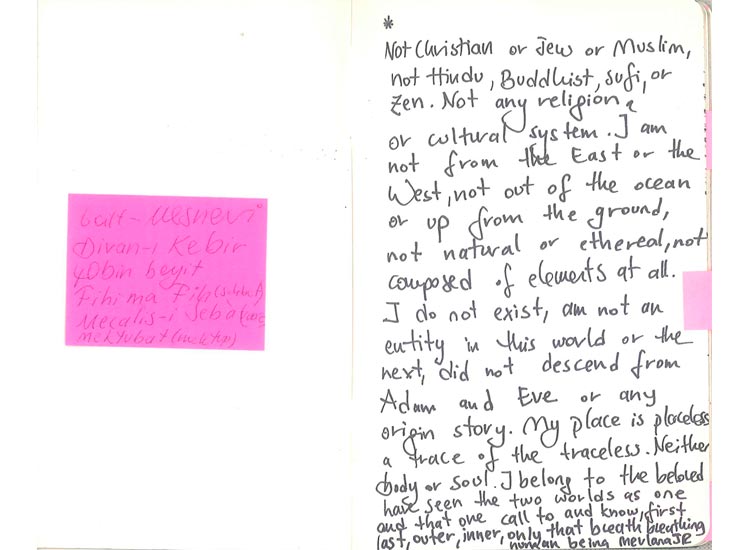 6 cilt - Mesnevi
Divan-ı Kebir
40bin beyit
Fihi ma Fih
Mecalis-i Seba
mektubat (mektup)
*
Not Christian or Jew or Muslim,
not Hindu, Buddhist, sufi, or
Zen. Not any religion
or cultural system. I am
not from the East or the
West, not out of the ocean
or up from the ground,
not natural or ethereal, not
composed of elements at all.
I do not exist, am not an
entity in this world or the
next, did not descend from
Adam and Eve or any
origin story. My place is placeless
a trace of the traceless. Neither
body or soul. I belong to the beloved
have seen the two worlds as one
and that one call to and know, first
last, outer, inner, only that breath breathing
human being mevlana JR